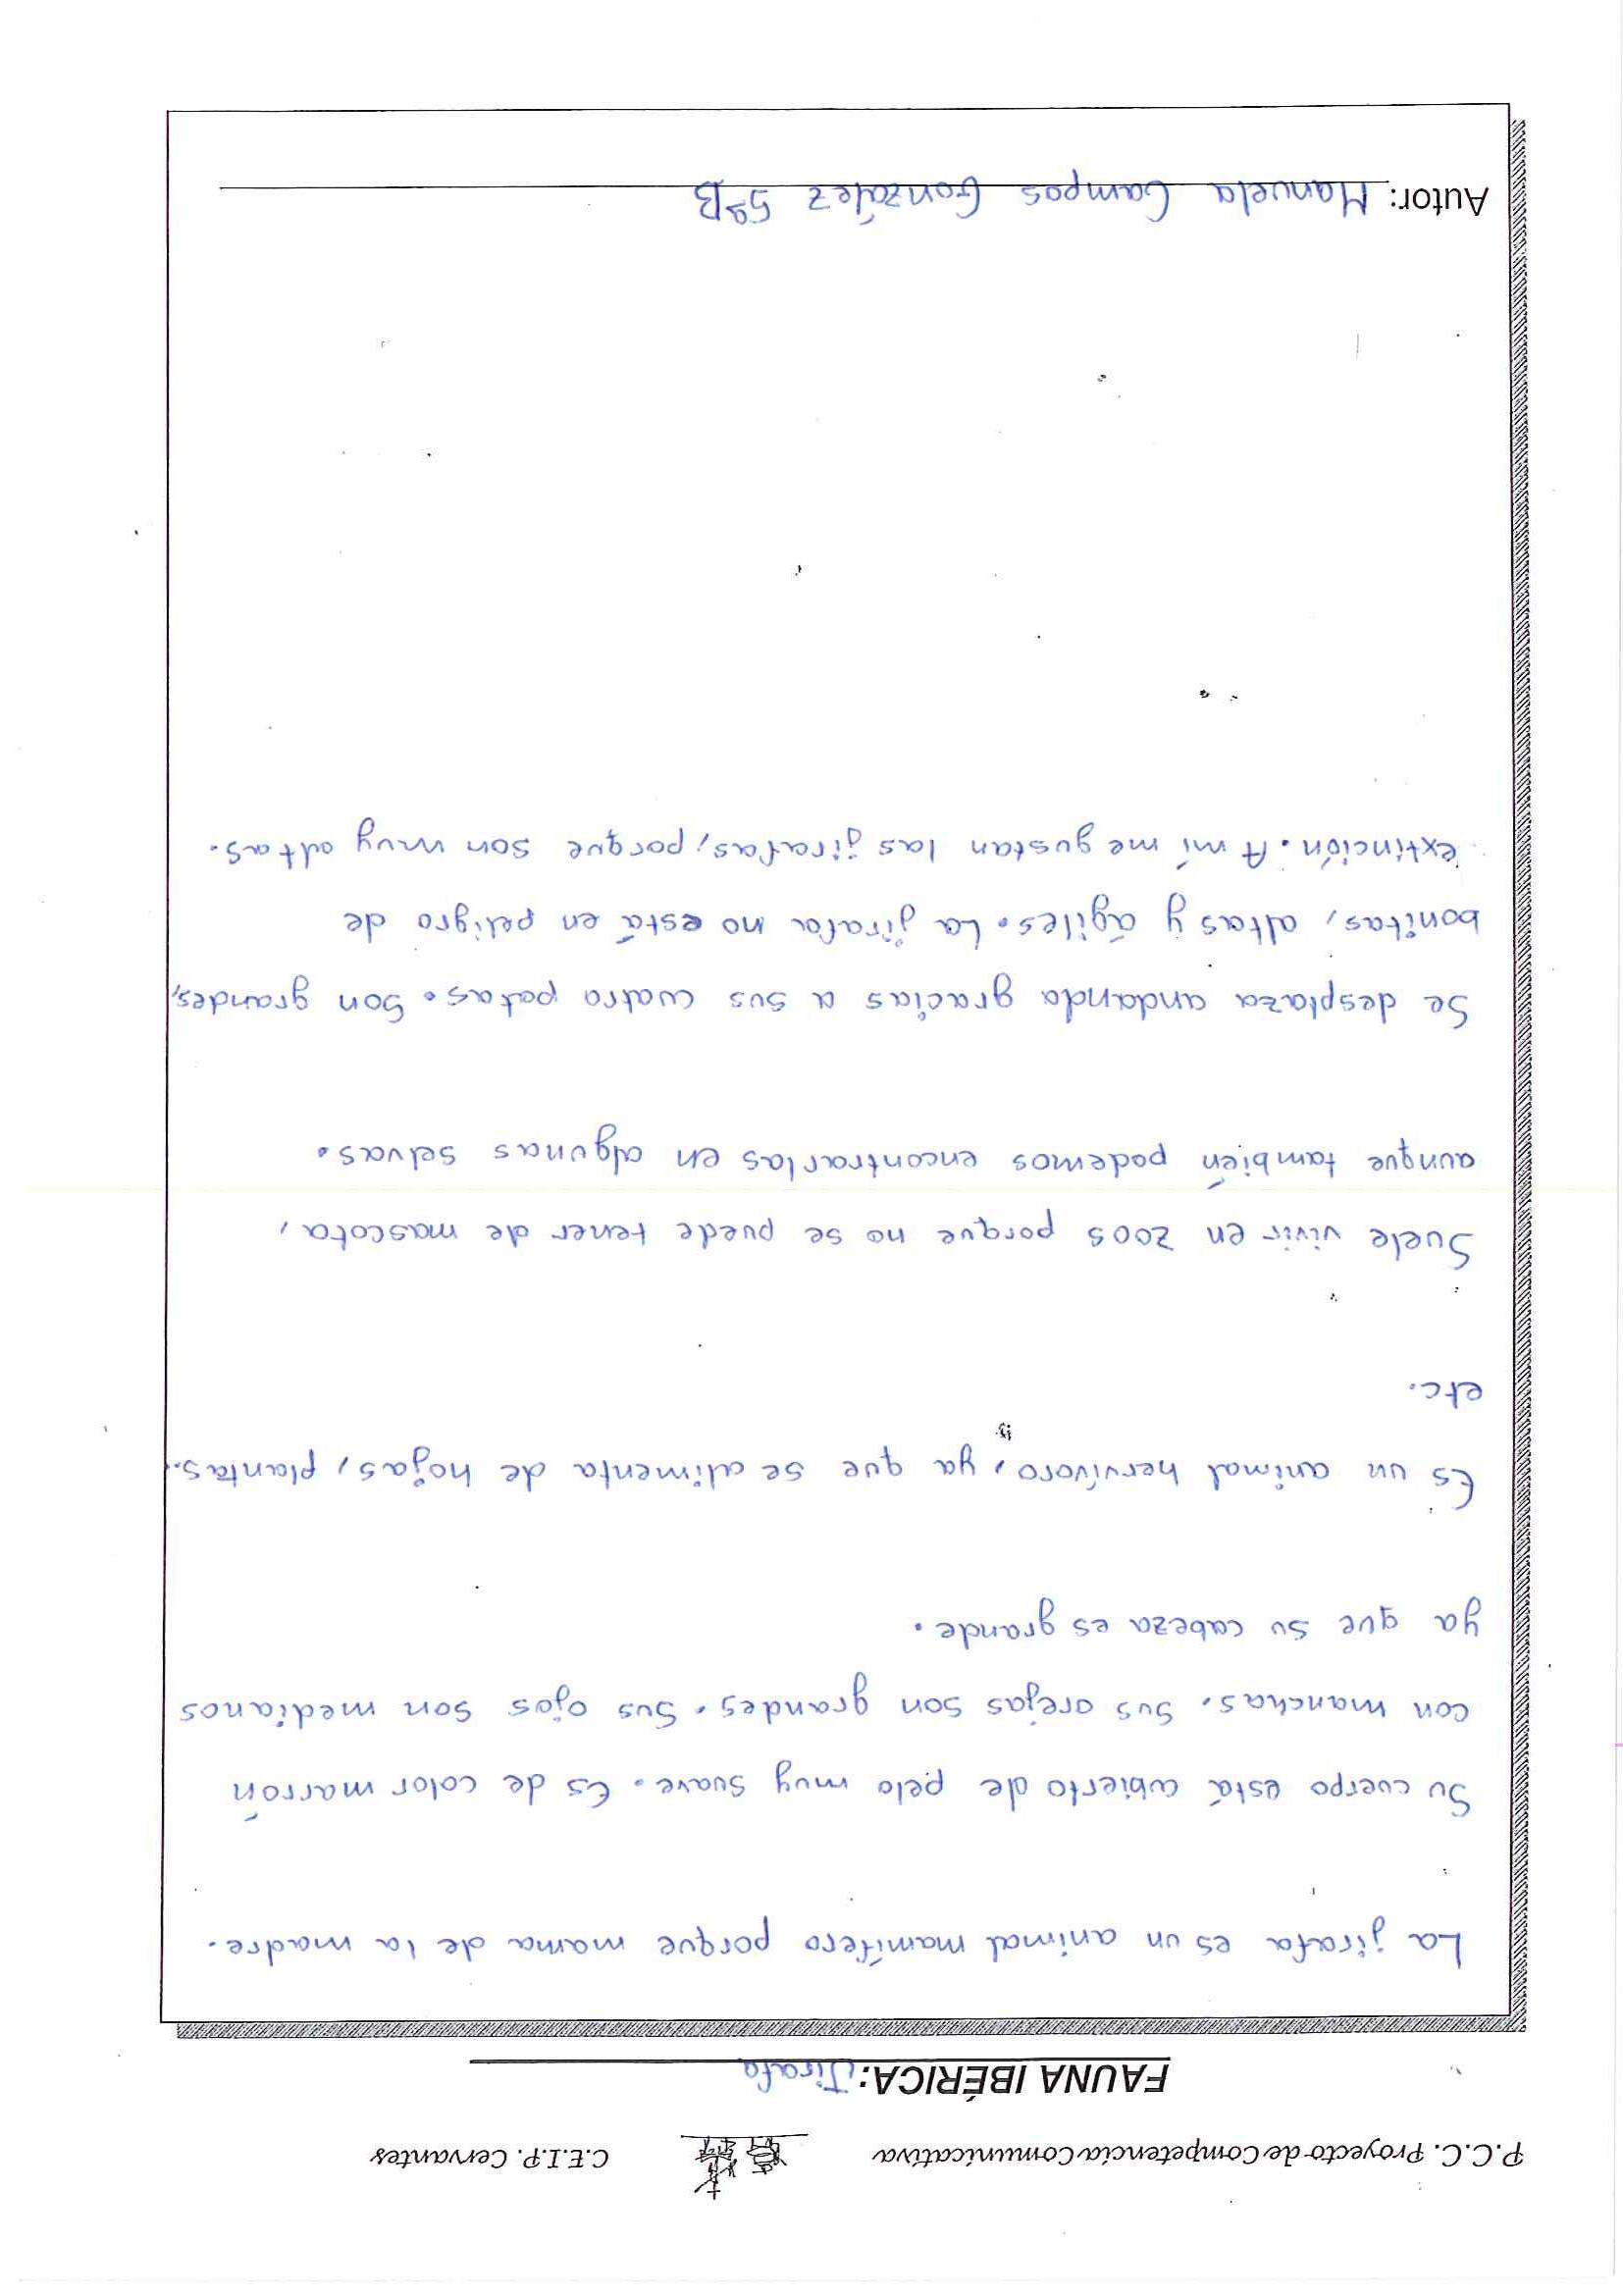 P.C.C. Proyecto de Competencia Comunicativa C.E.I.P. Cervantes
FAUNA IBÉRICA: Jirafa
La jirafa es un animal mamífero porque mama de la madre.
Su cuerpo está cubierto de pelo muy suave. Es de color marrón
con manchas. Sus orejas son grandes. Sus ojos son medianos
ya que su cabeza es grande.
Es un animal hervívoro, ya que se alimenta de hojas, plantas..
etc.
Suele vivir en zoos porque no se puede tener de mascota,
aunque también podemos encontrarlas en algunas selvas.
Se desplaza andando gracias a sus cuatro patas. Son grandes,
bonitas, altas y ágiles. La jirafa no está en peligro de
extinción. A mí me gustan las jirafas, porque son muy altas.
Autor: Manuela Campos González 5ºB